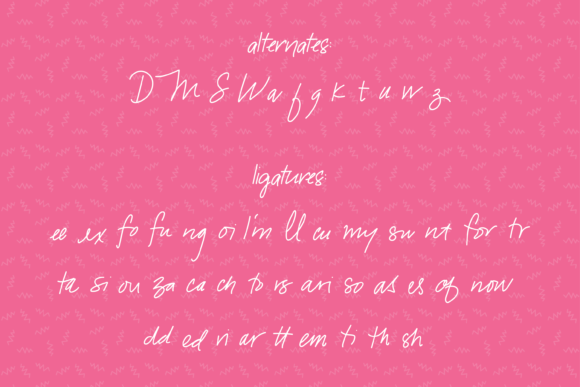 alternates:
D M S W a f g k t u w z
ligatures:
ee ex fo fu ng oi I'm ll cu my su nt for tr
ta si ou za ca ch to rs ari so as es of now
dd ed ri ar tt em ti th sh